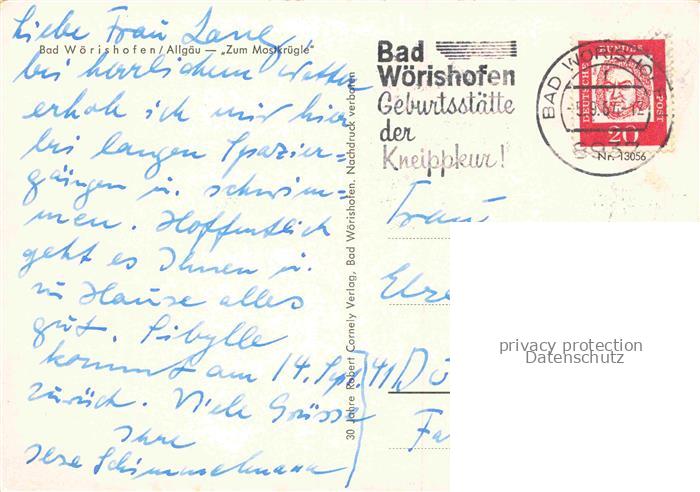 Liebe Frau Lang,
Bad Wörishofen/Allgäu — „Zum Mostkrügle"
bei herrlichem Wetter
erhole ich mich hier
bei langen Spazier-
gängen u. schwim-
men. Hoffentlich
geht es Ihnen u.
zu Hause alles
gut. Sibylle
kommt am 14. Sp.
zurück. Viele Grüsse
Ihre
Ilse Schimmelmann
30 Jahre Robert Cornely Verlag, Bad Wörishofen. Nachdruck verboten
Bad
Wörishofen
Geburtsstätte
der
Kneippkur!
BAD WÖRISHO
8952
DEUTSCHE BUNDESPOST
20
Nr. 13056
Frau
41 Dü
privacy protection
Datenschutz